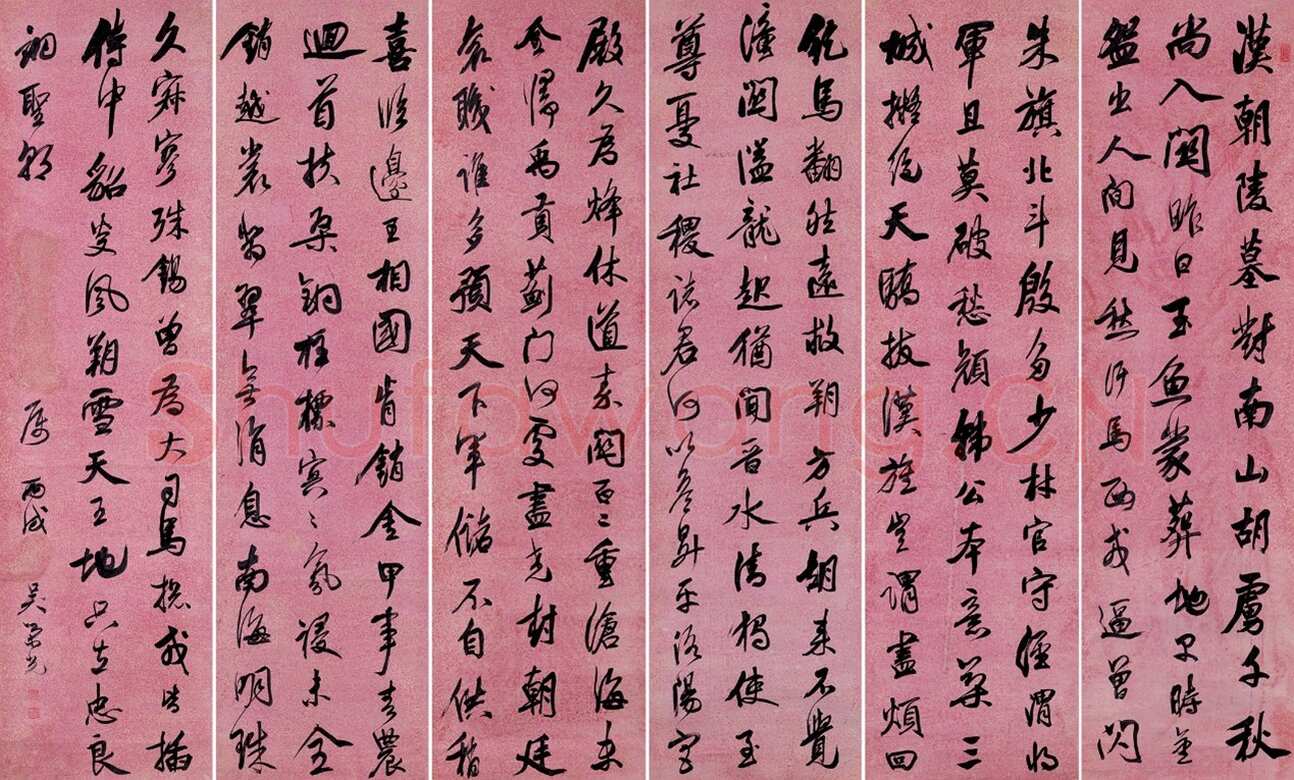 漢朝陵墓對南山胡虜千秋
尚入關昨日玉魚蒙葬地早時金
盌出人間見愁汗馬西戎逼曾閃
朱旗北斗殷多少材官守涇渭將
軍且莫破愁顏韓公本意築三
城擬絕天驕拔漢旌豈謂盡煩回
紇馬翻然遠救朔方兵胡來不覺
潼關隘龍起猶聞晉水清獨使至
尊憂社稷諸君何以答昇平洛陽宮
殿久為烽休道秦關百二重滄海未
全歸禹貢薊門何處盡堯封朝廷
袞職誰多預天下軍儲不自供稍
喜臨邊王相國肯銷金甲事春農
迴首扶桑銅柱標冥〻氛祲未全
銷越裳翡翠無消息南海明珠
久寂寥殊錫曾為大司馬總戎皆插
侍中貂炎風朔雪天王地只在忠良
翊聖朝
丙戌 吳榮光
Shufawang.CN